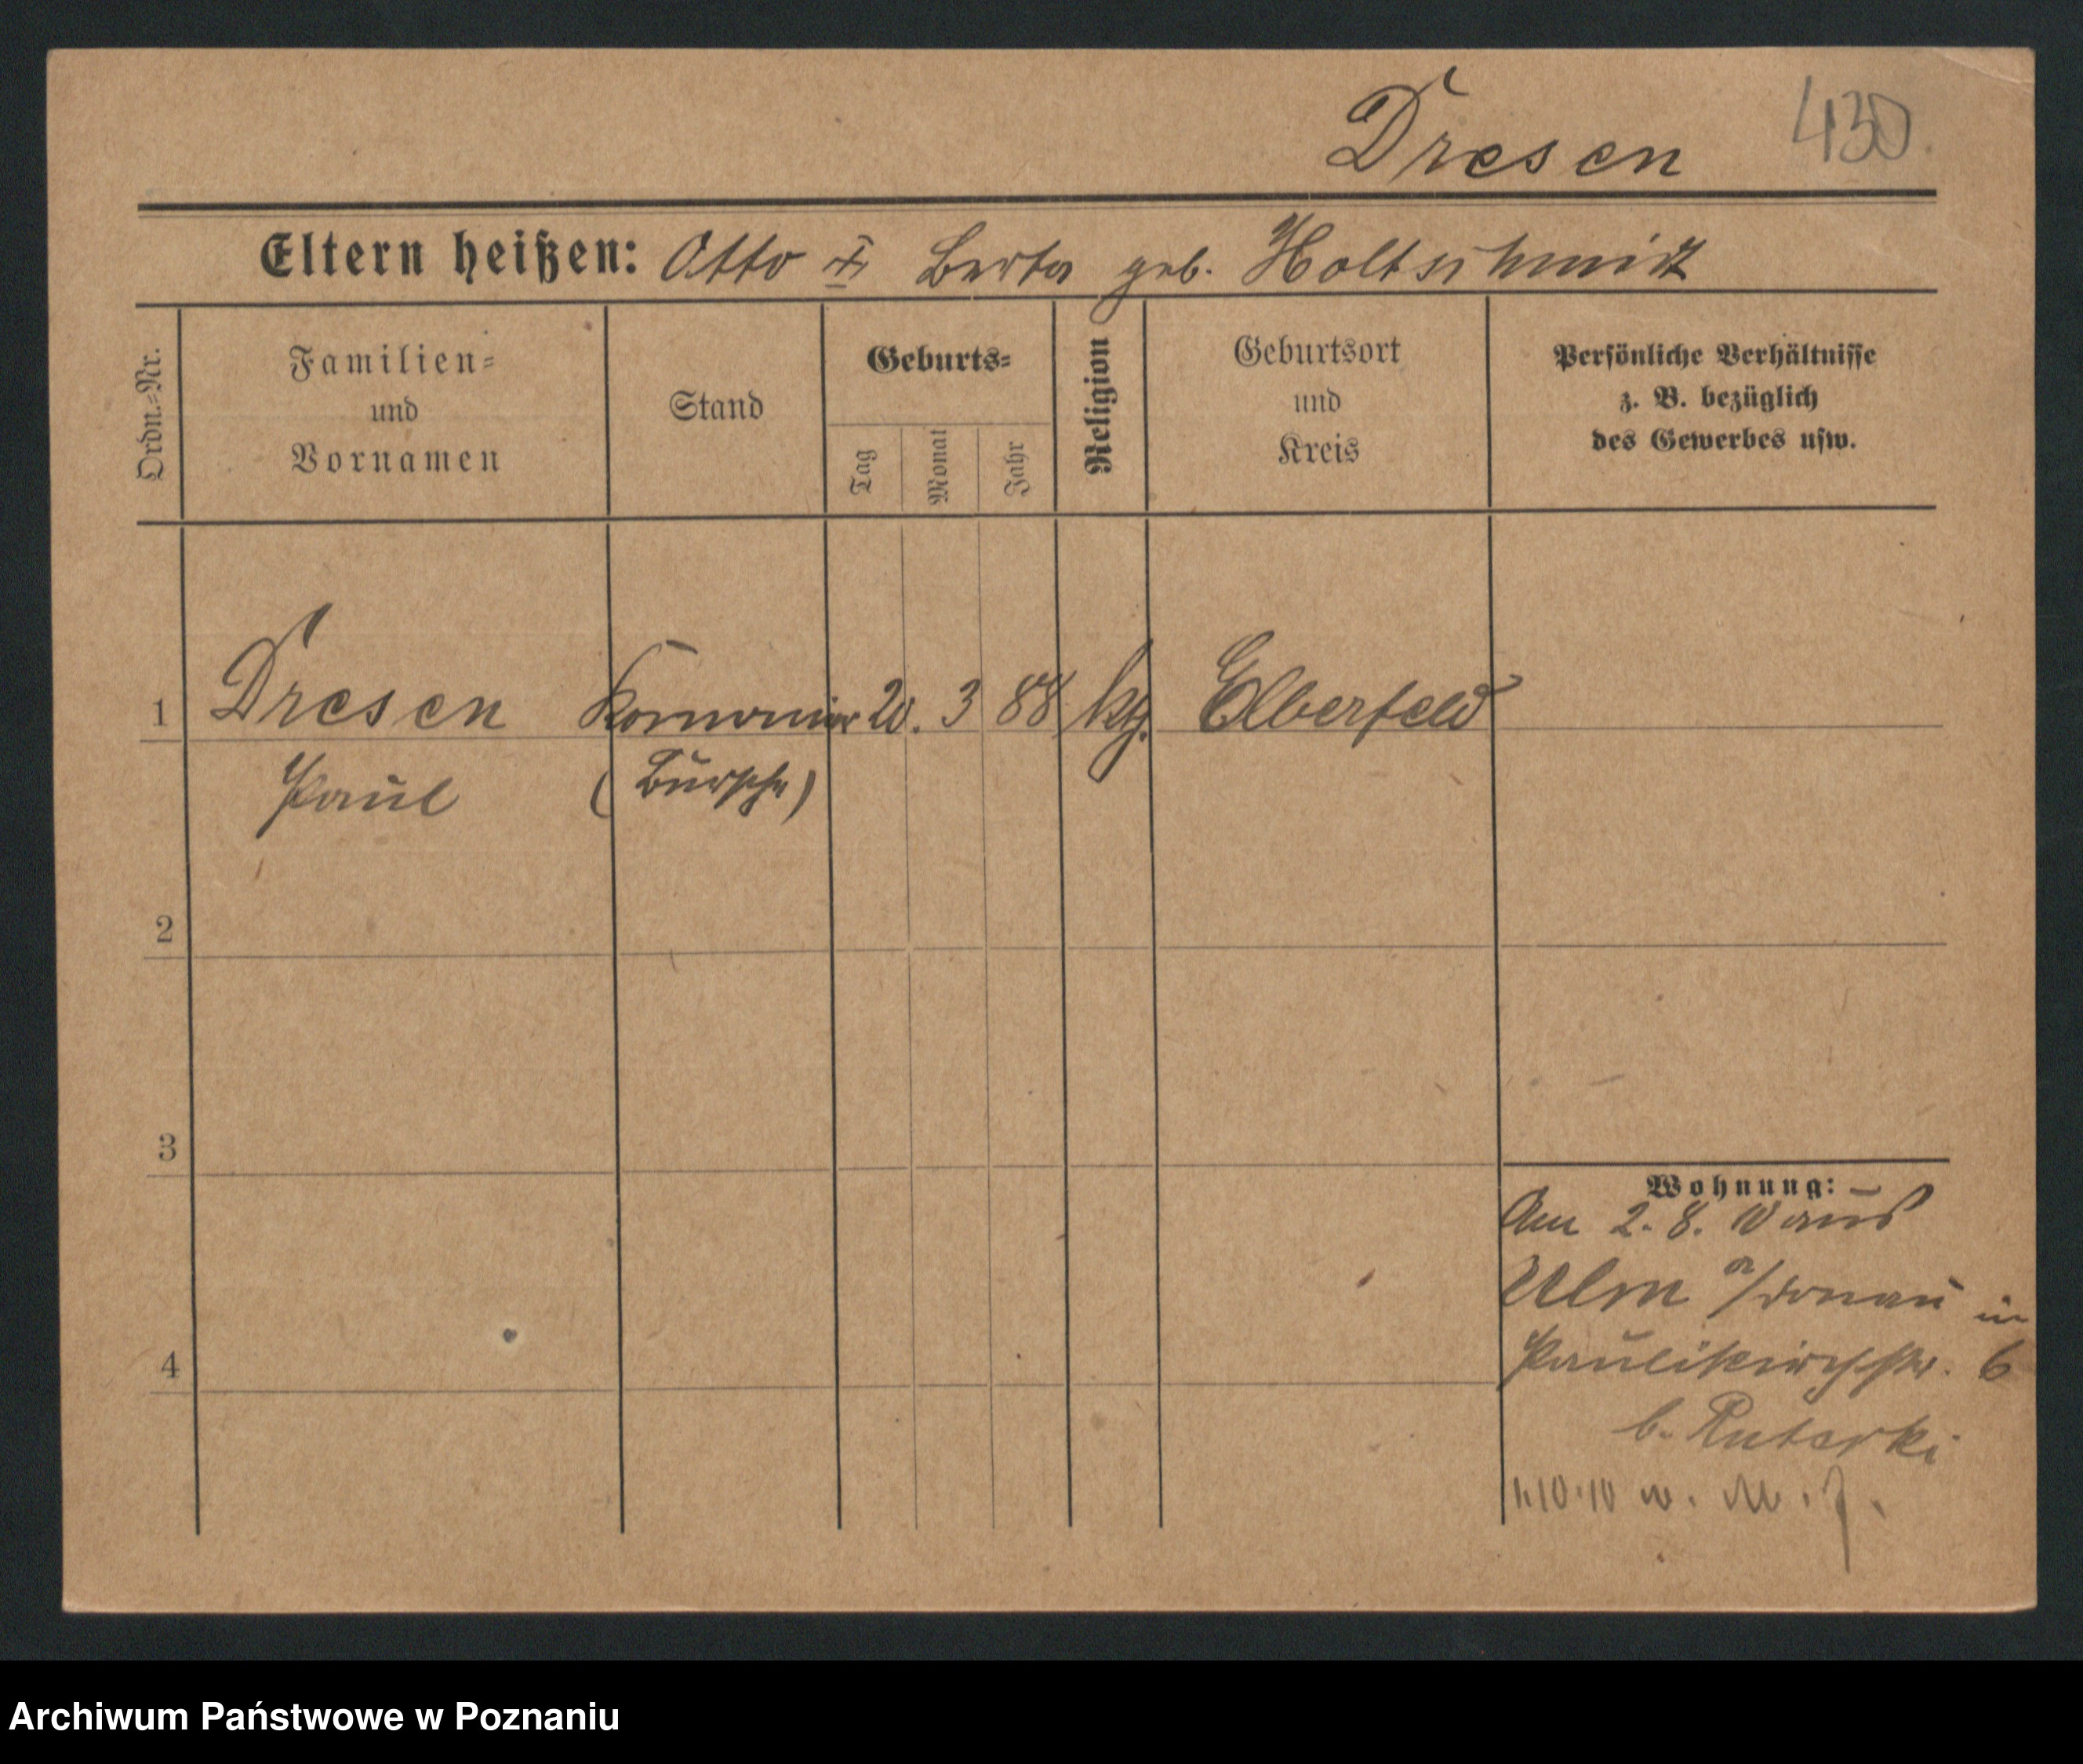 Dresen 430.
Eltern heißen: Otto u Berta geb. Holtschmidt
Ordn.=Nr.
Familien=
und
Vornamen
Stand
Geburts=
Tag
Monat
Jahr
Religion
Geburtsort
und
Kreis
Persönliche Verhältnisse
z. B. bezüglich
des Gewerbes usw.
1 Dresen Kanonier 20. 3 88 Elberfeld
Paul (Bursche)
2
3
4
Wohnung:
Am 2. 8. 10 aus
Ulm a/Donau in
Paulikirchstr. 6
b.
1.10.10
Archiwum Państwowe w Poznaniu